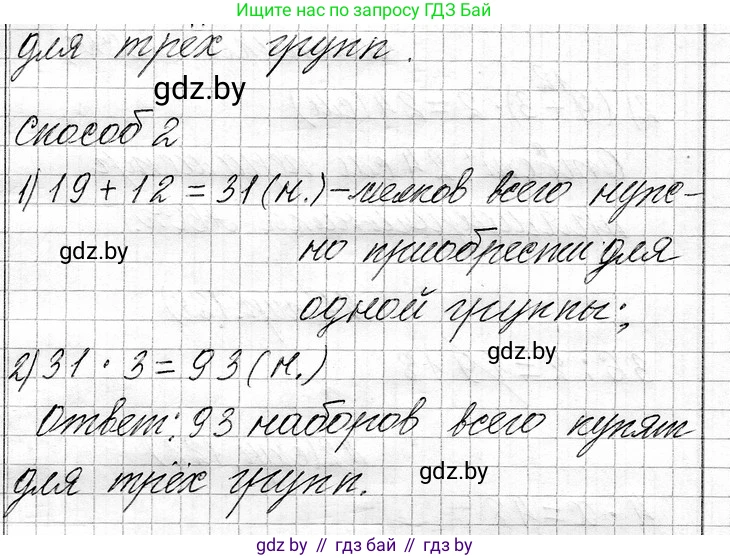 Ищите нас по запросу ГДЗ Бай
для трёх групп.
gdz.by
Способ 2
1) 19 + 12 = 31 (н.) - мелков всего нуж-
gdz.by
но приобрести для
одной группы;
gdz.by
2) 31 · 3 = 93 (н.)
Ответ: 93 наборов всего купят
gdz.by
для трёх групп.
gdz.by // гдз бай // gdz.by